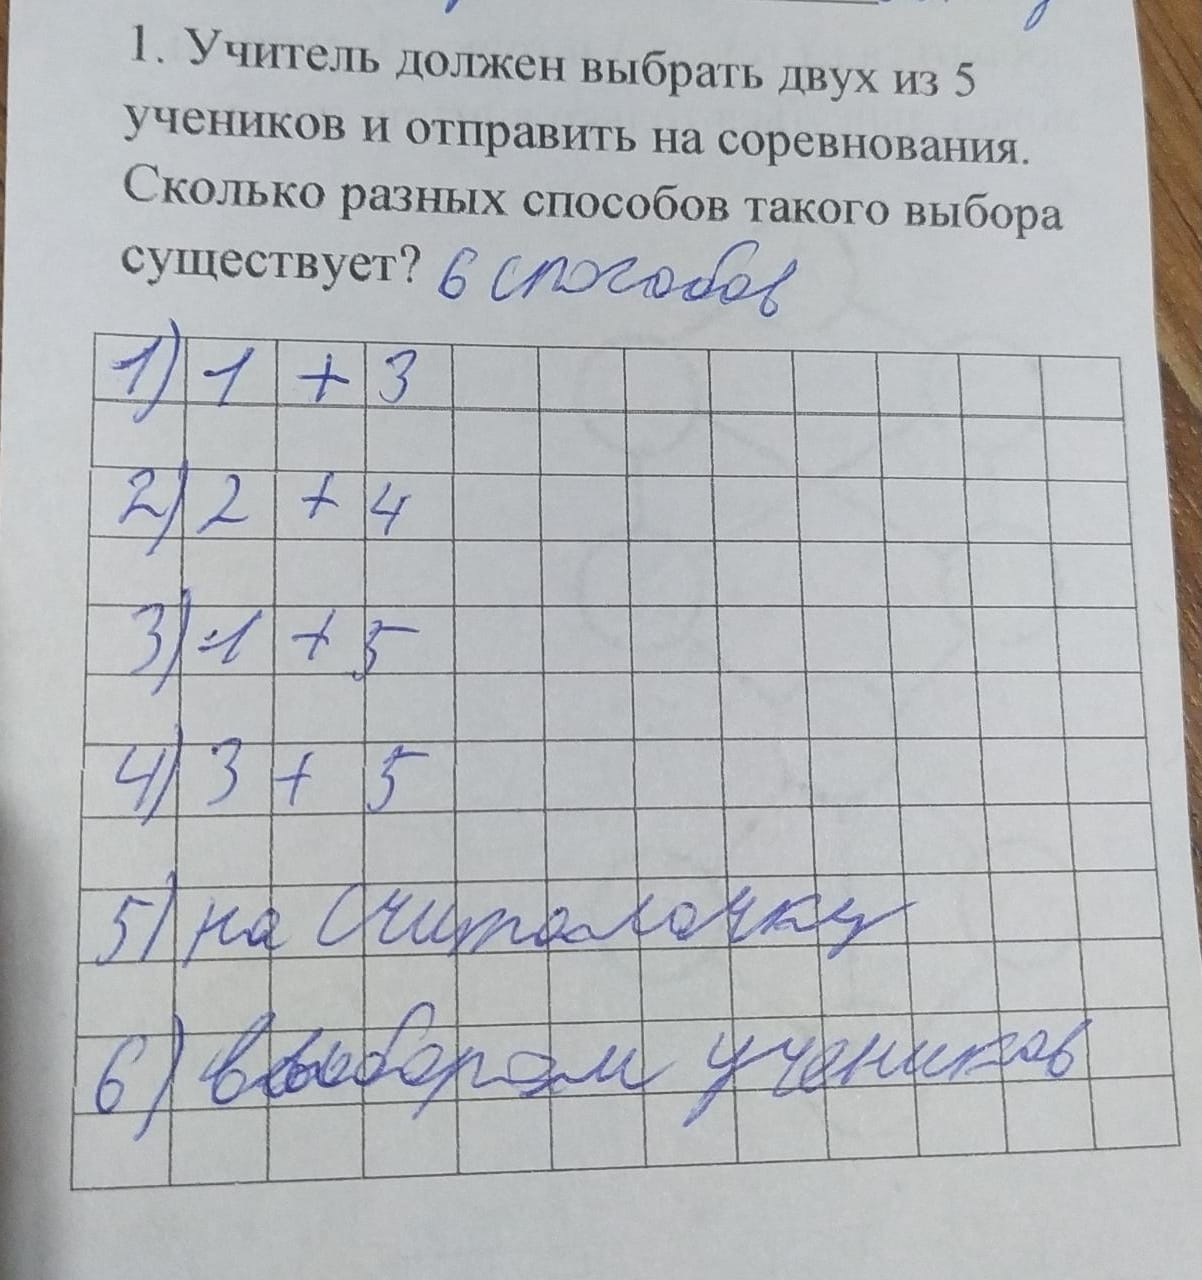 1. Учитель должен выбрать двух из 5
учеников и отправить на соревнования.
Сколько разных способов такого выбора
существует? 6 способов
1) 1 + 3
2) 2 + 4
3) 1 + 5
4) 3 + 5
5) на считалочку
6) выбором учеников